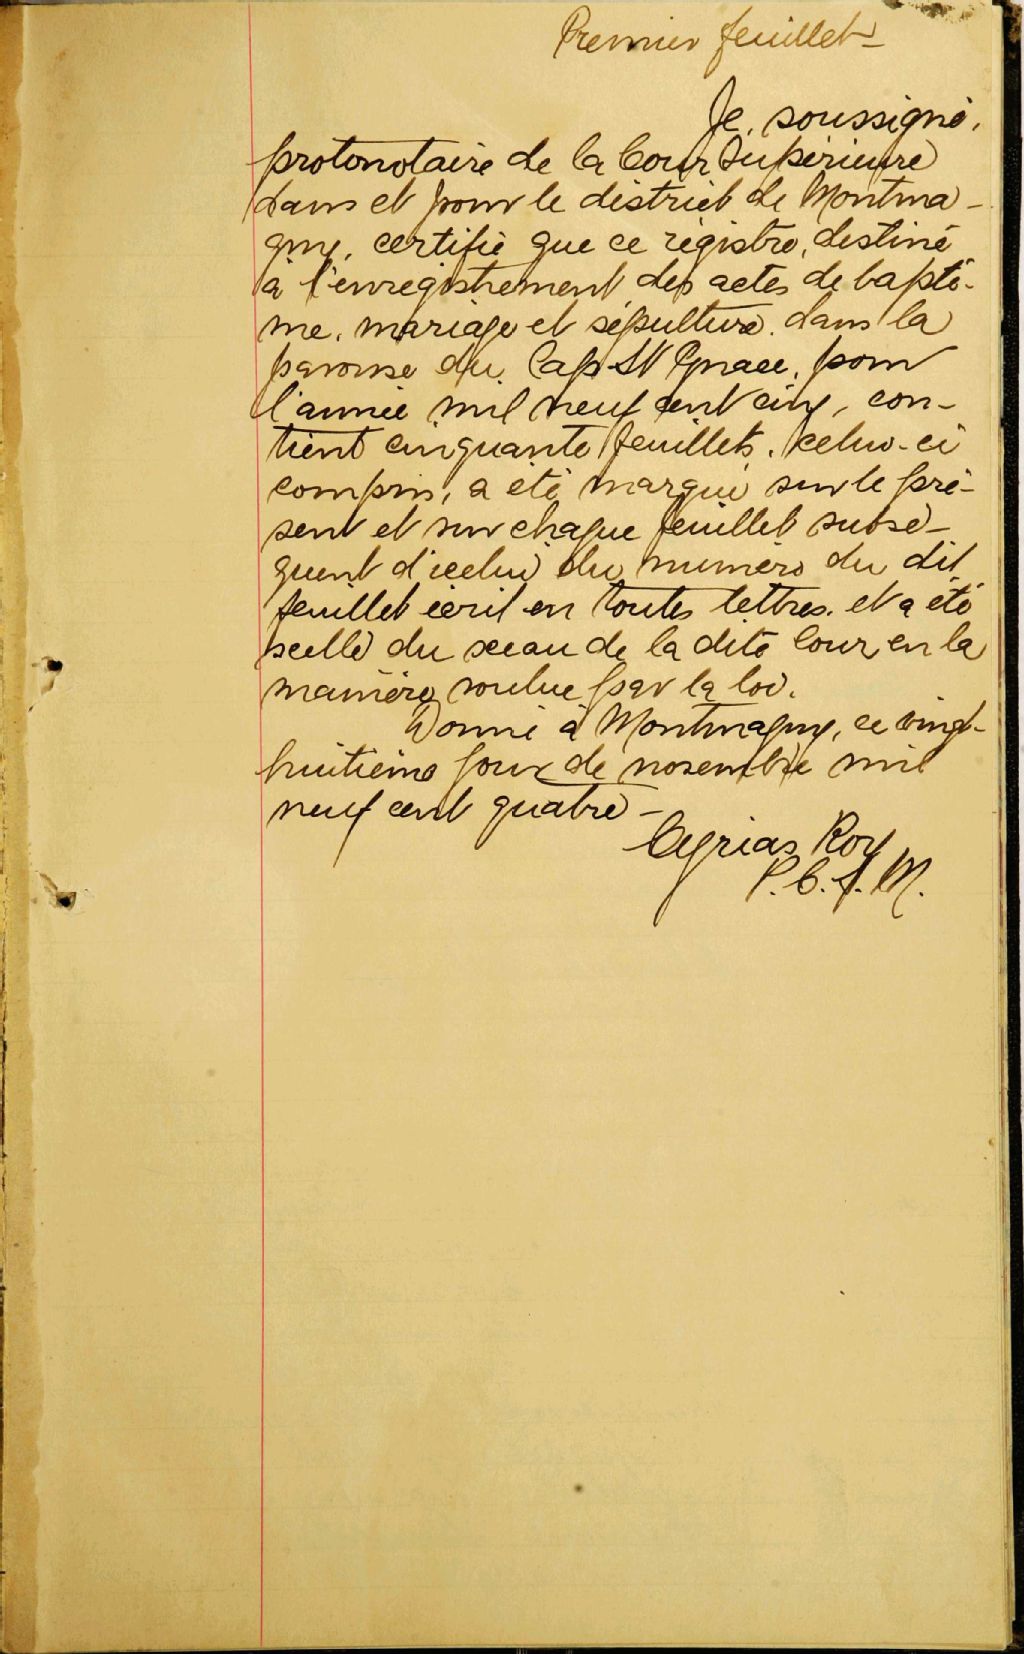 Premier feuillet —
Je, soussigné,
protonotaire de la Cour Supérieure
dans et pour le district de Montma-
gny, certifie que ce régistre, destiné
à l'enregistrement des actes de baptê-
me, mariage et sépulture, dans la
paroisse du Cap St Ignace, pour
l'année mil neuf cent cinq, con-
tient cinquante feuillets, celui-ci
compris, a été marqué sur le pré-
sent et sur chaque feuillet subsé-
quent d'icelui du numéro du dit
feuillet écrit en toutes lettres, et a été
scellé du sceau de la dite Cour, en la
manière voulue par la loi.
Donné à Montmagny, ce vingt-
huitième jour de novembre mil
neuf cent quatre —
Cyrias Roy
P. C. S. M.